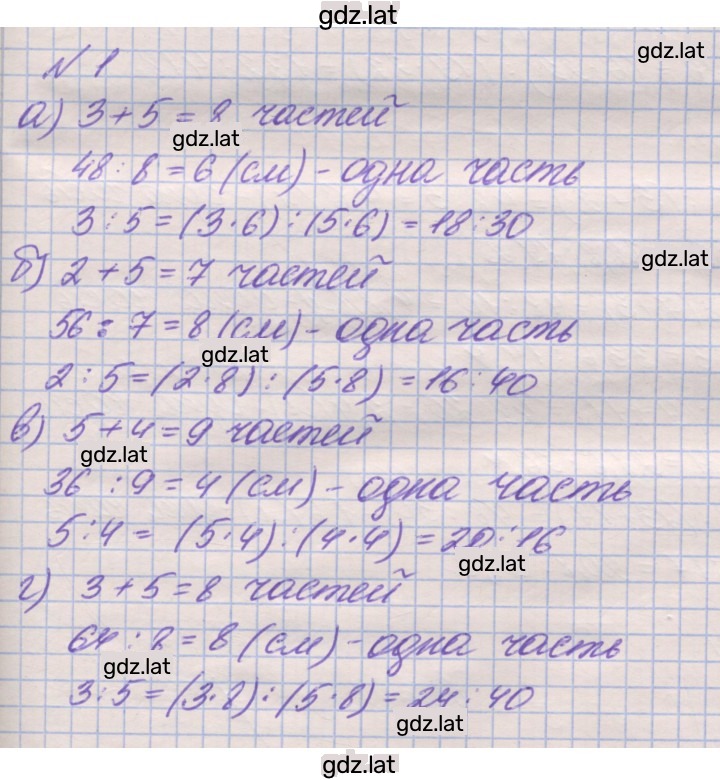 gdz.lat
gdz.lat
N 1
а) 3 + 5 = 8 частей
gdz.lat
48 : 8 = 6 (см) - одна часть
3 : 5 = (3·6) : (5·6) = 18 : 30
gdz.lat
б) 2 + 5 = 7 частей
56 : 7 = 8 (см) - одна часть
gdz.lat
2 : 5 = (2·8) : (5·8) = 16 : 40
в) 5 + 4 = 9 частей
gdz.lat
36 : 9 = 4 (см) - одна часть
5 : 4 = (5·4) : (4·4) = 20 : 16
gdz.lat
г) 3 + 5 = 8 частей
64 : 8 = 8 (см) - одна часть
gdz.lat
3 : 5 = (3·8) : (5·8) = 24 : 40
gdz.lat
gdz.lat